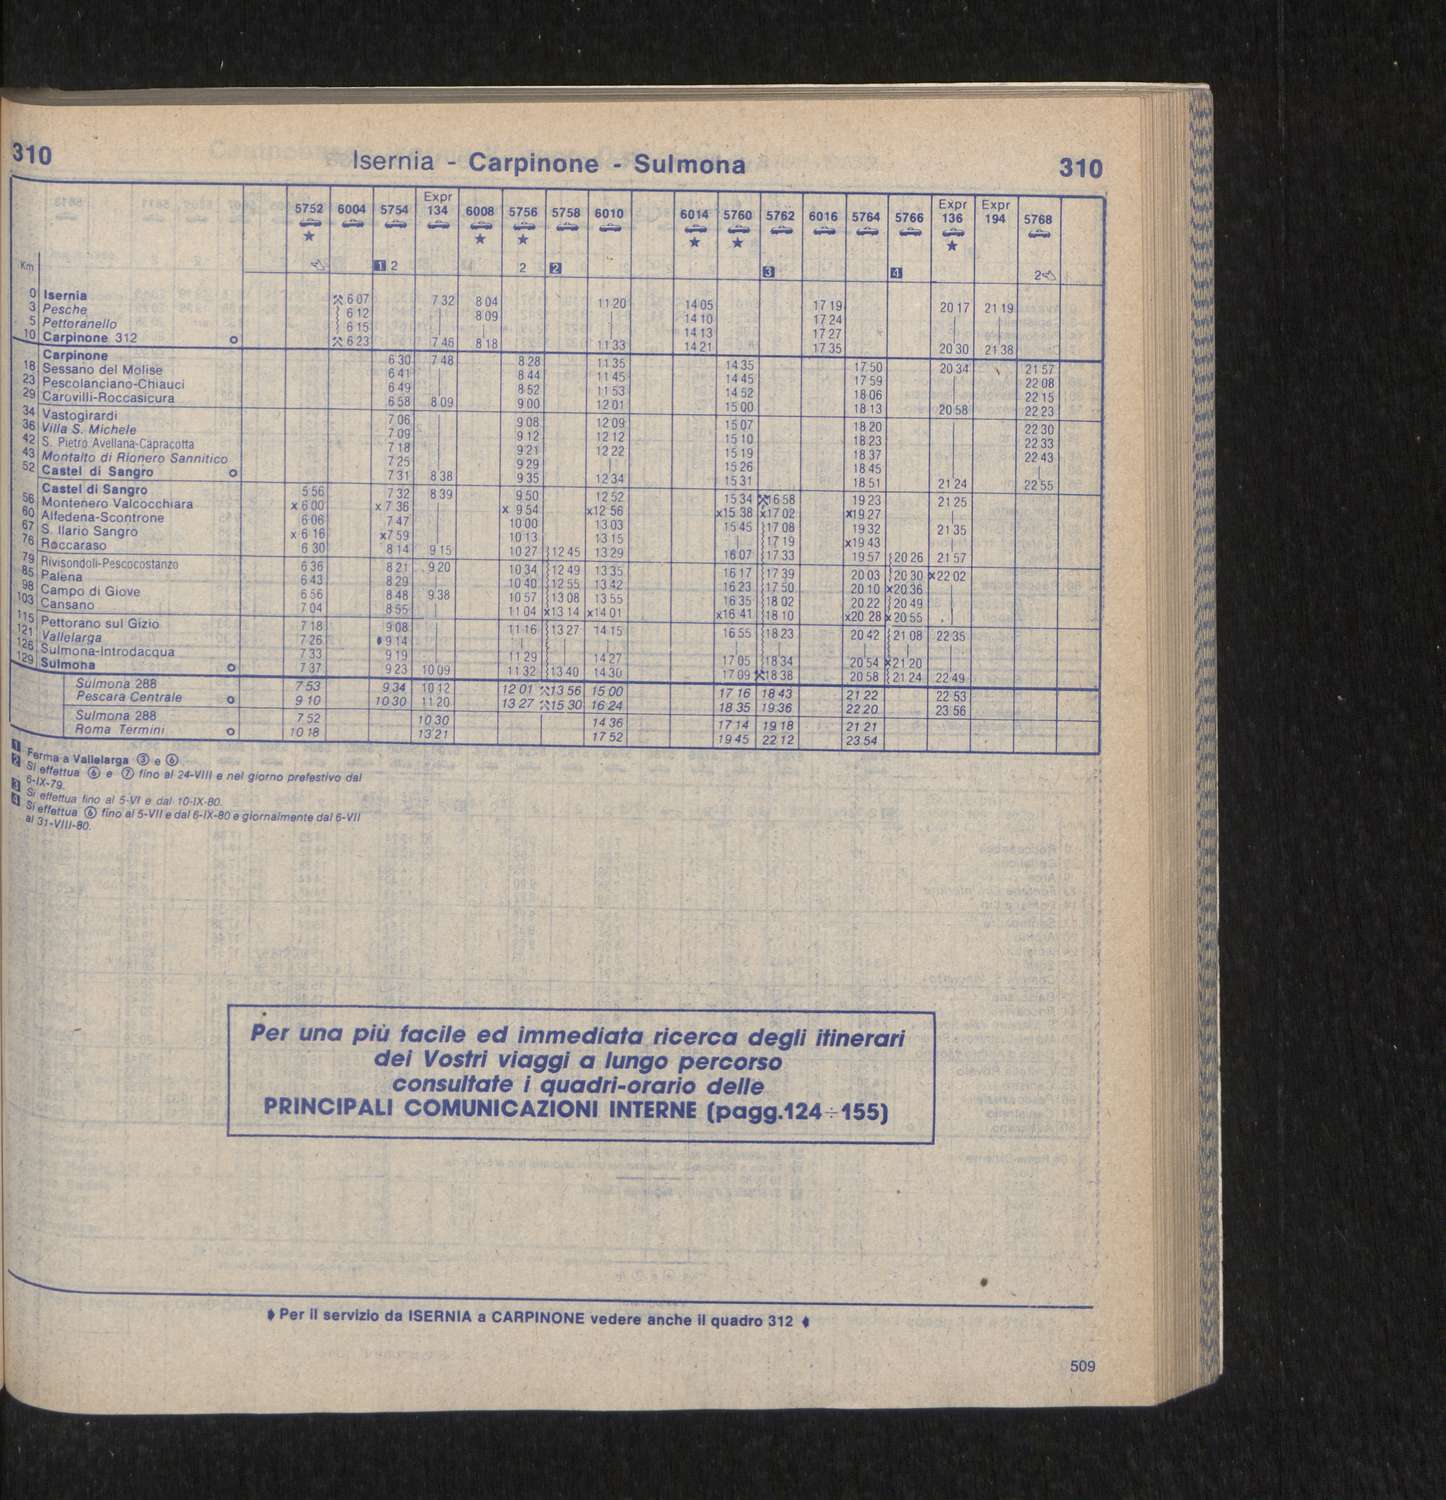 310 Isernia - Carpinone - Sulmona 310
Km 5752 6004 5754 Expr 134 6008 5756 5758 6010 6014 5760 5762 6016 5764 5766 Expr 136 Expr 194 5768
★ ★ ★ ★ ★ ★
1 2 2 2 3 4 2
0 Isernia ⚒6 07 7 32 8 04 11 20 14 05 17 19 20 17 21 19
3 Pesche 6 12 | 8 09 | 14 10 17 24 | |
5 Pettoranello 6 15 | | | 14 13 17 27 | |
10 Carpinone 312 o ⚒6 23 7 46 8 18 11 33 14 21 17 35 20 30 21 38
Carpinone 6 30 7 48 8 28 11 35 14 35 17 50 20 34 21 57
18 Sessano del Molise 6 41 | 8 44 11 45 14 45 17 59 | 22 08
23 Pescolanciano-Chiauci 6 49 | 8 52 11 53 14 52 18 06 | 22 15
29 Carovilli-Roccasicura 6 58 8 09 9 00 12 01 15 00 18 13 20 58 22 23
34 Vastogirardi 7 06 | 9 08 12 09 15 07 18 20 | 22 30
36 Villa S. Michele 7 09 | 9 12 12 12 15 10 18 23 | 22 33
42 S. Pietro Avellana-Capracotta 7 18 | 9 21 12 22 15 19 18 37 | 22 43
43 Montalto di Rionero Sannitico 7 25 | 9 29 | 15 26 18 45 | |
52 Castel di Sangro o 7 31 8 38 9 35 12 34 15 31 18 51 21 24 22 55
Castel di Sangro 5 56 7 32 8 39 9 50 12 52 15 34 ⚒16 58 19 23 21 25
56 Montenero Valcocchiara x 6 00 x 7 36 | x 9 54 x12 56 x15 38 x17 02 x19 27 |
60 Alfedena-Scontrone 6 06 7 47 | 10 00 13 03 15 45 17 08 19 32 21 35
67 S. Ilario Sangro x 6 16 x7 59 | 10 13 13 15 | 17 19 x19 43 |
76 Roccaraso 6 30 8 14 9 15 10 27 12 45 13 29 16 07 17 33 19 57 20 26 21 57
79 Rivisondoli-Pescocostanzo 6 36 8 21 9 20 10 34 12 49 13 35 16 17 17 39 20 03 20 30 x22 02
85 Palena 6 43 8 29 | 10 40 12 55 13 42 16 23 17 50 20 10 x20 36 |
98 Campo di Giove 6 56 8 48 9 38 10 57 13 08 13 55 16 35 18 02 20 22 20 49 |
103 Cansano 7 04 8 55 | 11 04 x13 14 x14 01 x16 41 18 10 x20 28 x20 55 |
115 Pettorano sul Gizio 7 18 9 08 | 11 16 13 27 14 15 16 55 18 23 20 42 21 08 22 35
121 Vallelarga 7 26 9 14 | | | | | | |
126 Sulmona-Introdacqua 7 33 9 19 | 11 29 14 27 17 05 18 34 20 54 x21 20 |
129 Sulmona o 7 37 9 23 10 09 11 32 13 40 14 30 17 09 ⚒18 38 20 58 21 24 22 49
Sulmona 288 7 53 9 34 10 12 12 01 ⚒13 56 15 00 17 16 18 43 21 22 22 53
Pescara Centrale o 9 10 10 30 11 20 13 27 ⚒15 30 16 24 18 35 19 36 22 20 23 56
Sulmona 288 7 52 10 30 14 36 17 14 19 18 21 21
Roma Termini o 10 18 13 21 17 52 19 45 22 12 23 54
1 Ferma a Vallelarga ③ e ⑥.
2 Si effettua ⑥ e ⑦ fino al 24-VIII e nel giorno prefestivo dal
6-IX-79.
3 Si effettua fino al 5-VI e dal 10-IX-80.
4 Si effettua ⑥ fino al 5-VII e dal 6-IX-80 e giornalmente dal 6-VII
al 31-VIII-80.
Per una più facile ed immediata ricerca degli itinerari
dei Vostri viaggi a lungo percorso
consultate i quadri-orario delle
PRINCIPALI COMUNICAZIONI INTERNE (pagg.124÷155)
Per il servizio da ISERNIA a CARPINONE vedere anche il quadro 312
509